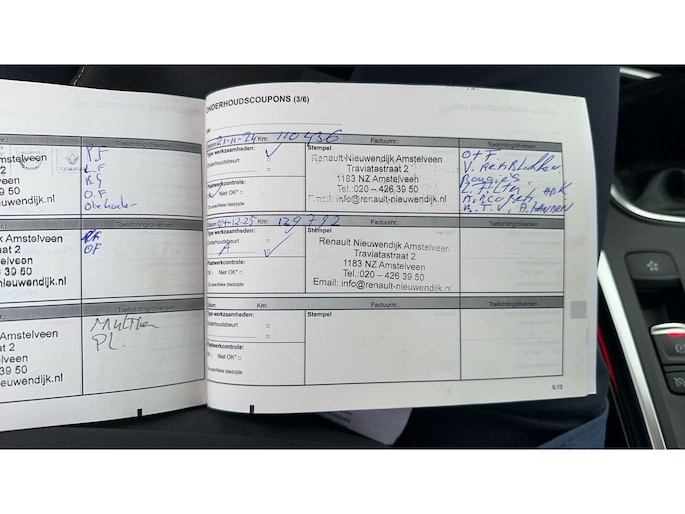 ONDERHOUDSCOUPONS (3/6)
Toelichting/diversen
P.F
L.F
B.F
O.F
Amstelveen
at 2
9 50
nieuwendijk.nl
Datum: 21-11-24 Km: 110436 Factuurnr.: Toelichting/diversen
Type werkzaamheden:
Onderhoudsbeurt
Plaatwerkcontrole:
Niet OK*
Zie specifieke bladzijde
Stempel
Renault-Nieuwendijk Amstelveen
Traviatastraat 2
1183 NZ Amstelveen
Tel.:020 - 426.39 50
Email: info@renault-nieuwendijk.nl
O+F
V. Remblokken
Bougies
Airco
Toelichting/diversen
OF
k Amstelveen
straat 2
lveen
6 39 50
nieuwendijk.nl
Datum: 04-12-25 Km: 129792 Factuurnr.: Toelichting/diversen
Type werkzaamheden:
Onderhoudsbeurt
A
Plaatwerkcontrole:
OK Niet OK*
Zie specifieke bladzijde
Stempel
Renault Nieuwendijk Amstelveen
Traviatastraat 2
1183 NZ Amstelveen
Tel.:020 - 426 39 50
Email: info@renault-nieuwendijk.nl
Toelichting/diversen
PL.
Amstelveen
at 2
lveen
39 50
ieuwendijk.nl
Datum: Km: Factuurnr.: Toelichting/diversen
Type werkzaamheden:
Onderhoudsbeurt
Plaatwerkcontrole:
OK Niet OK*
Zie specifieke bladzijde
Stempel
6.13